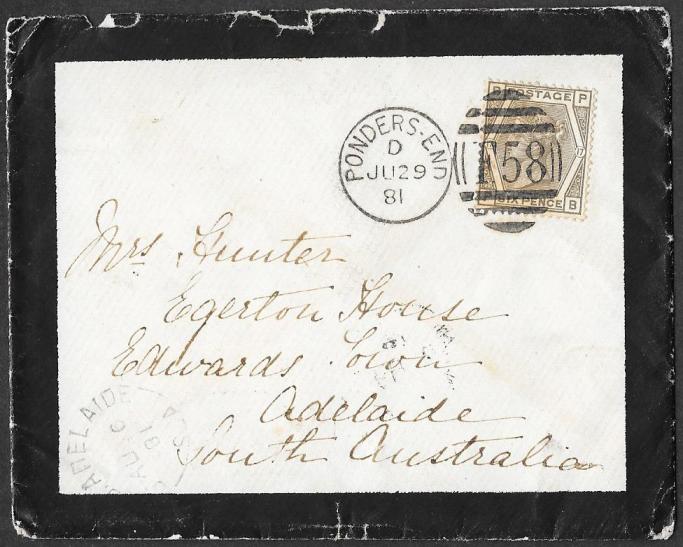 B POSTAGE P
PONDERS-END
D
JU29
81
F58
SIX PENCE B
Mrs Hunter
Egerton House
Edwards Town
Adelaide
South Australia
ADELAIDE
AU
81